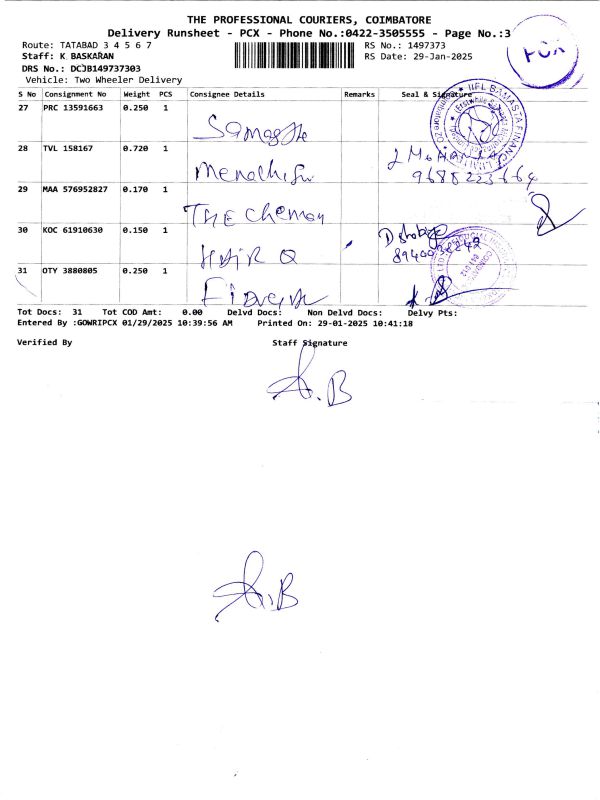 THE PROFESSIONAL COURIERS, COIMBATORE
Delivery Runsheet - PCX - Phone No.:0422-3505555 - Page No.:3
Route: TATABAD 3 4 5 6 7
RS No.: 1497373
Staff: K BASKARAN
RS Date: 29-Jan-2025
DRS No.: DCJB149737303
Vehicle: Two Wheeler Delivery
PCX
S No Consignment No Weight PCS Consignee Details Remarks Seal & Signature
27 PRC 13591663 0.250 1
28 TVL 158167 0.720 1
29 MAA 576952827 0.170 1 THE Chemay
30 KOC 61910630 0.150 1 HAIR O
8940038242
31 OTY 3880805 0.250 1
Tot Docs: 31 Tot COD Amt: 0.00 Delvd Docs: Non Delvd Docs: Delvy Pts:
Entered By :GOWRIPCX 01/29/2025 10:39:56 AM Printed On: 29-01-2025 10:41:18
Verified By Staff Signature
A.B
A.B